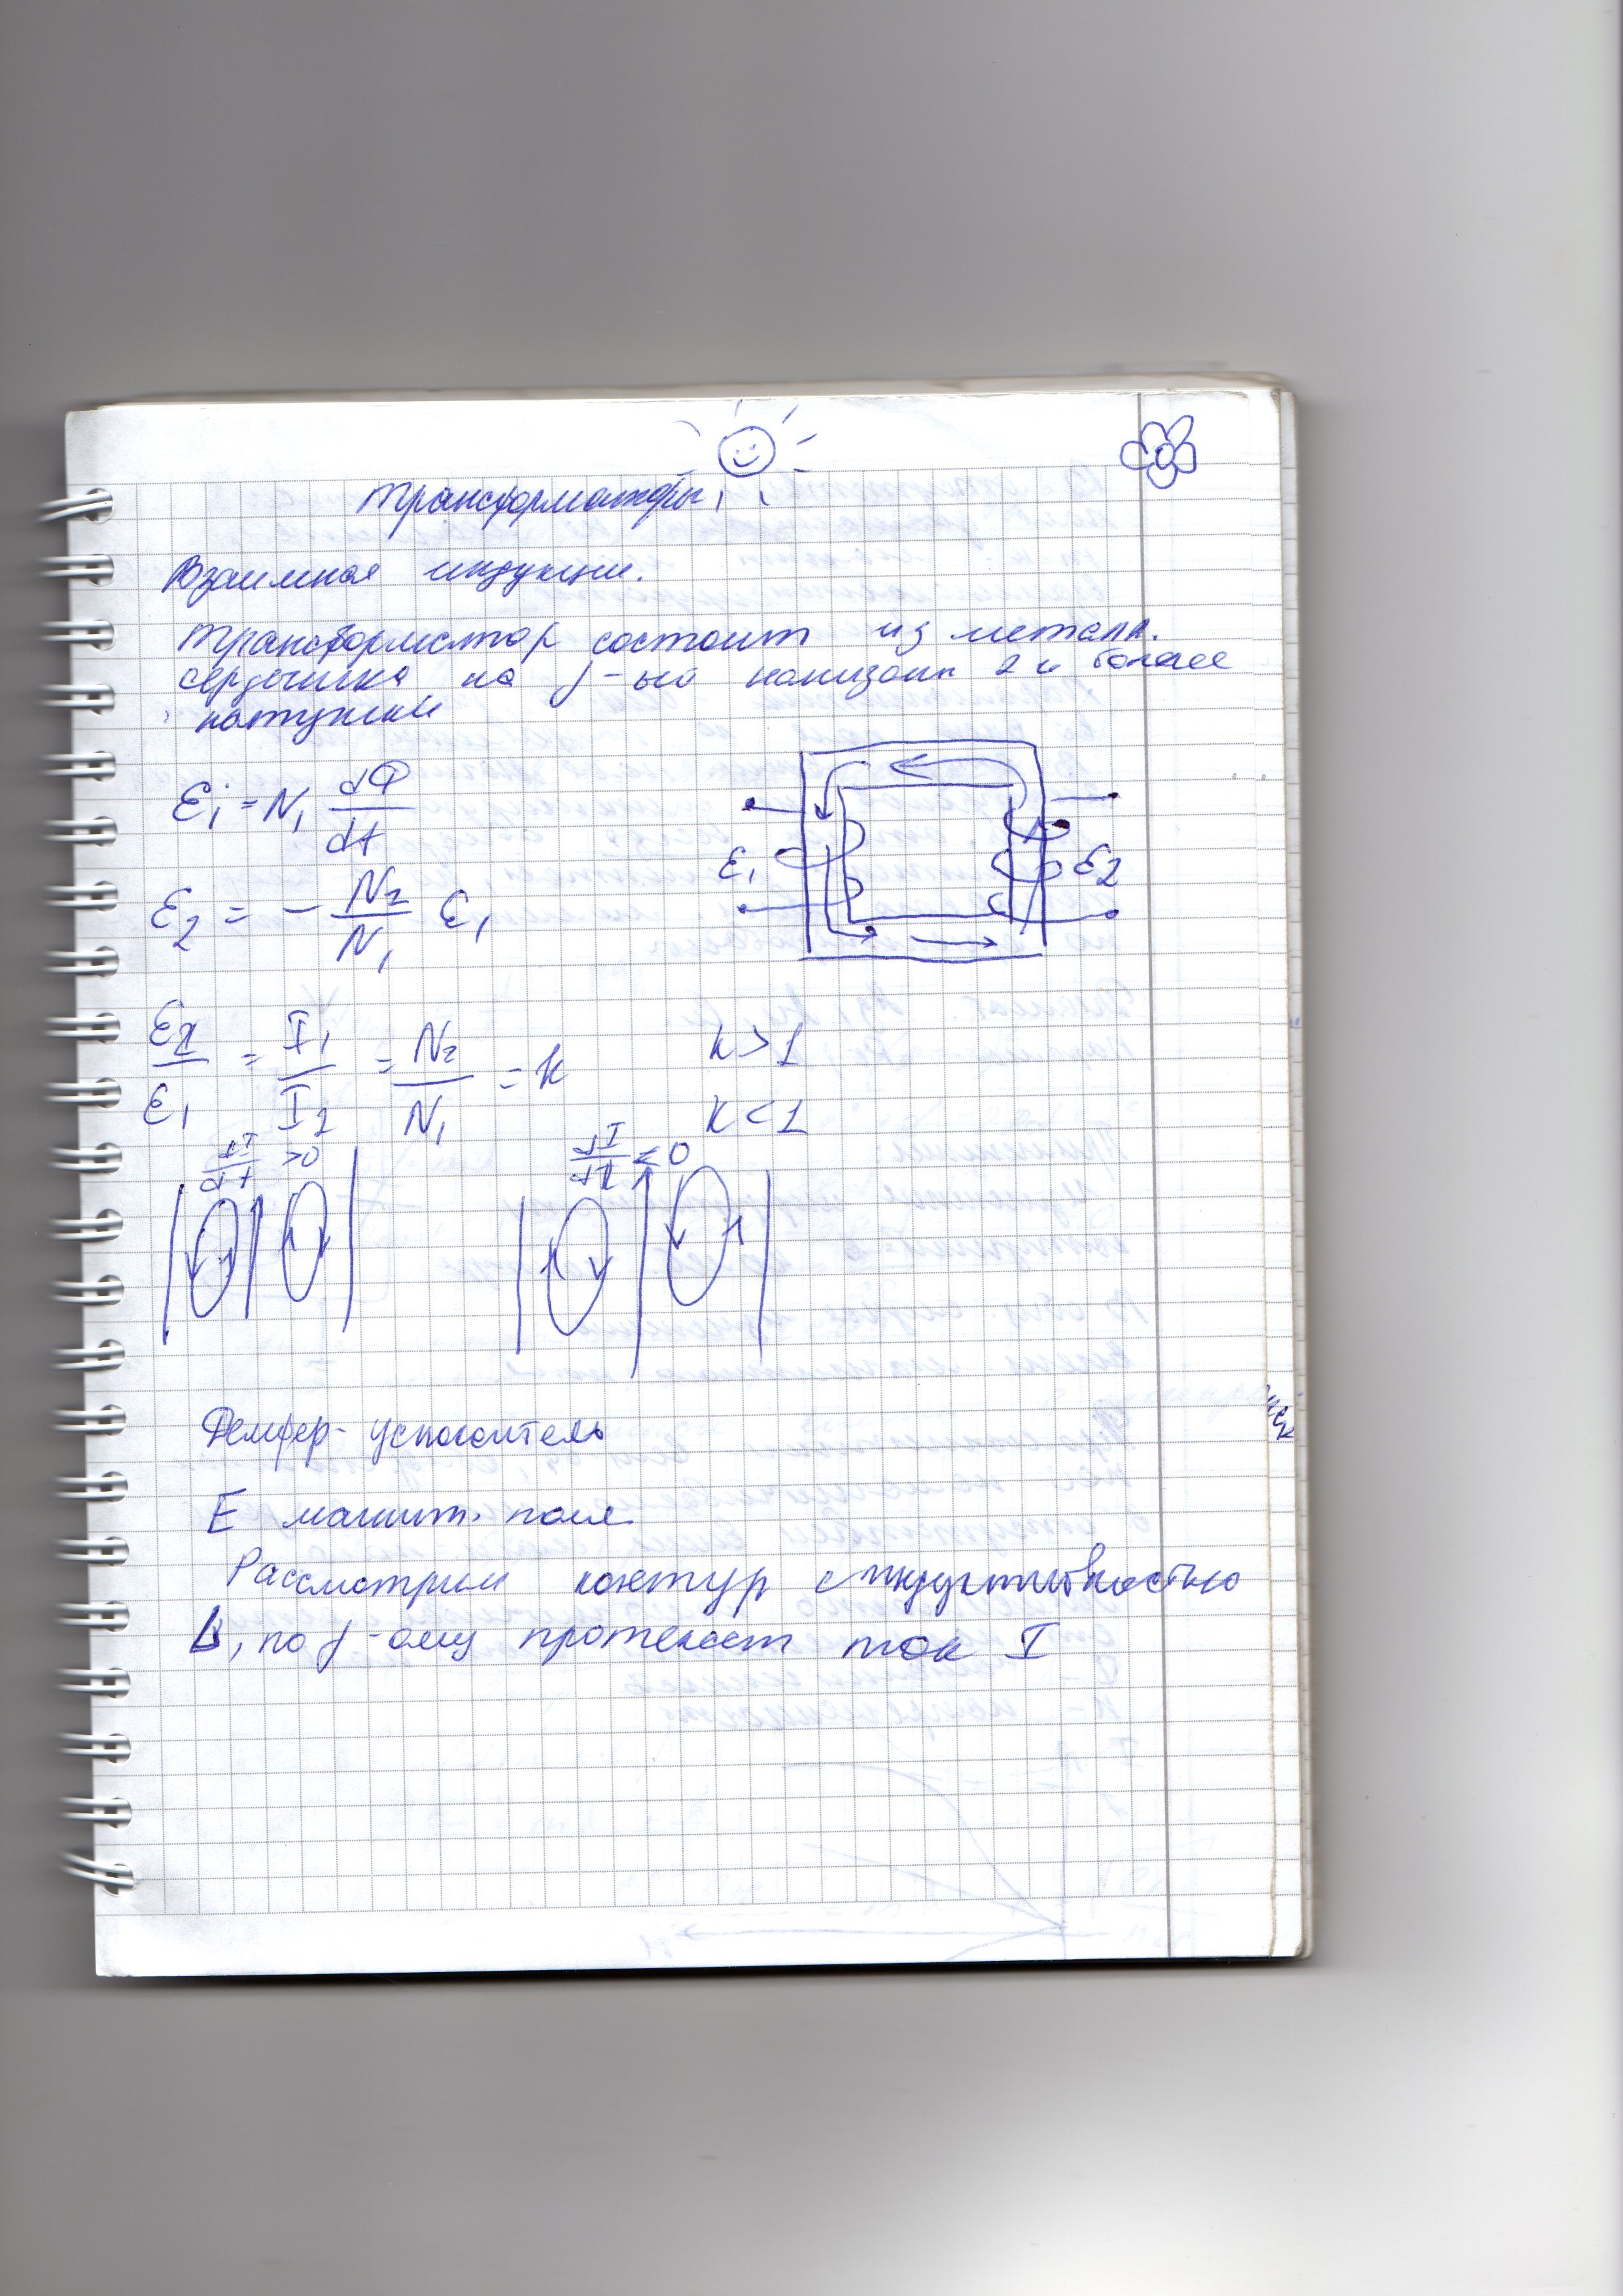 Трансформаторы
Взаимная индукция.
Трансформатор состоит из металл.
сердечника на f-ый нанизан 2 и более
катушки
Ei = N1 dФ/dt
E1
E2
E2 = - N2/N1 E1
E2/E1 = I1/I2 = N2/N1 = k
k > 1
k < 1
dI/dt > 0
dI/dt < 0
Демфер - успокоитель
E магнит. поля
Рассмотрим контур с индуктивностью
L, по f-ому протекает ток I